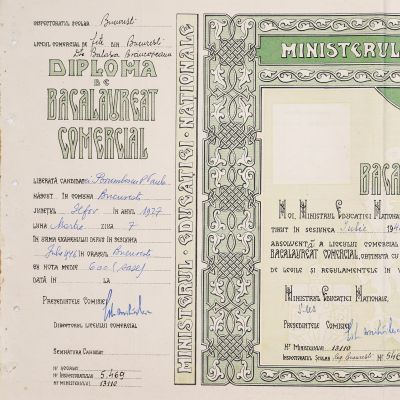 INSPECTORATUL ȘCOLAR București
LICEUL COMERCIAL DE fete DIN București
D-na Bălașa Brâncoveanu
DIPLOMA
DE
BACALAUREAT
COMERCIAL
LIBERATĂ CANDIDATEI Porumbescu P. Paula
NĂSCUT ÎN COMUNA București
JUDEȚUL Ilfov ÎN ANUL 1927
LUNA Martie ZIUA 7
ÎN URMA EXAMENULUI DEPUS ÎN SESIUNEA
Iulie 1946 ÎN ORAȘUL București
CU NOTA MEDIE 6.00 (șase)
DATĂ ÎN LA
PREȘEDINTELE COMISIEI
DIRECTORUL LICEULUI COMERCIAL
SEMNĂTURA CANDIDAT
Nº LICEULUI
Nº INSPECTORATULUI 5.469
Nº MINISTERULUI 13110
MINISTERUL EDUCAȚIEI NAȚIONALE
MINISTERUL
BACAL
NOI, MINISTRUL EDUCAȚIEI NAȚIONALE
ȚINUT ÎN SESIUNEA Iulie 194
ABSOLVENTĂ A LICEULUI COMERCIAL
BACALAUREAT COMERCIAL, OBȚINUTĂ CU
DE LEGILE ȘI REGULAMENTELE ÎN V
MINISTRUL EDUCAȚIEI NAȚIONALE,
PREȘEDINTELE COMISIEI
Nº MINISTERULUI 13110
INSPECTORATUL ȘCOLAR Reg. București Nº 546